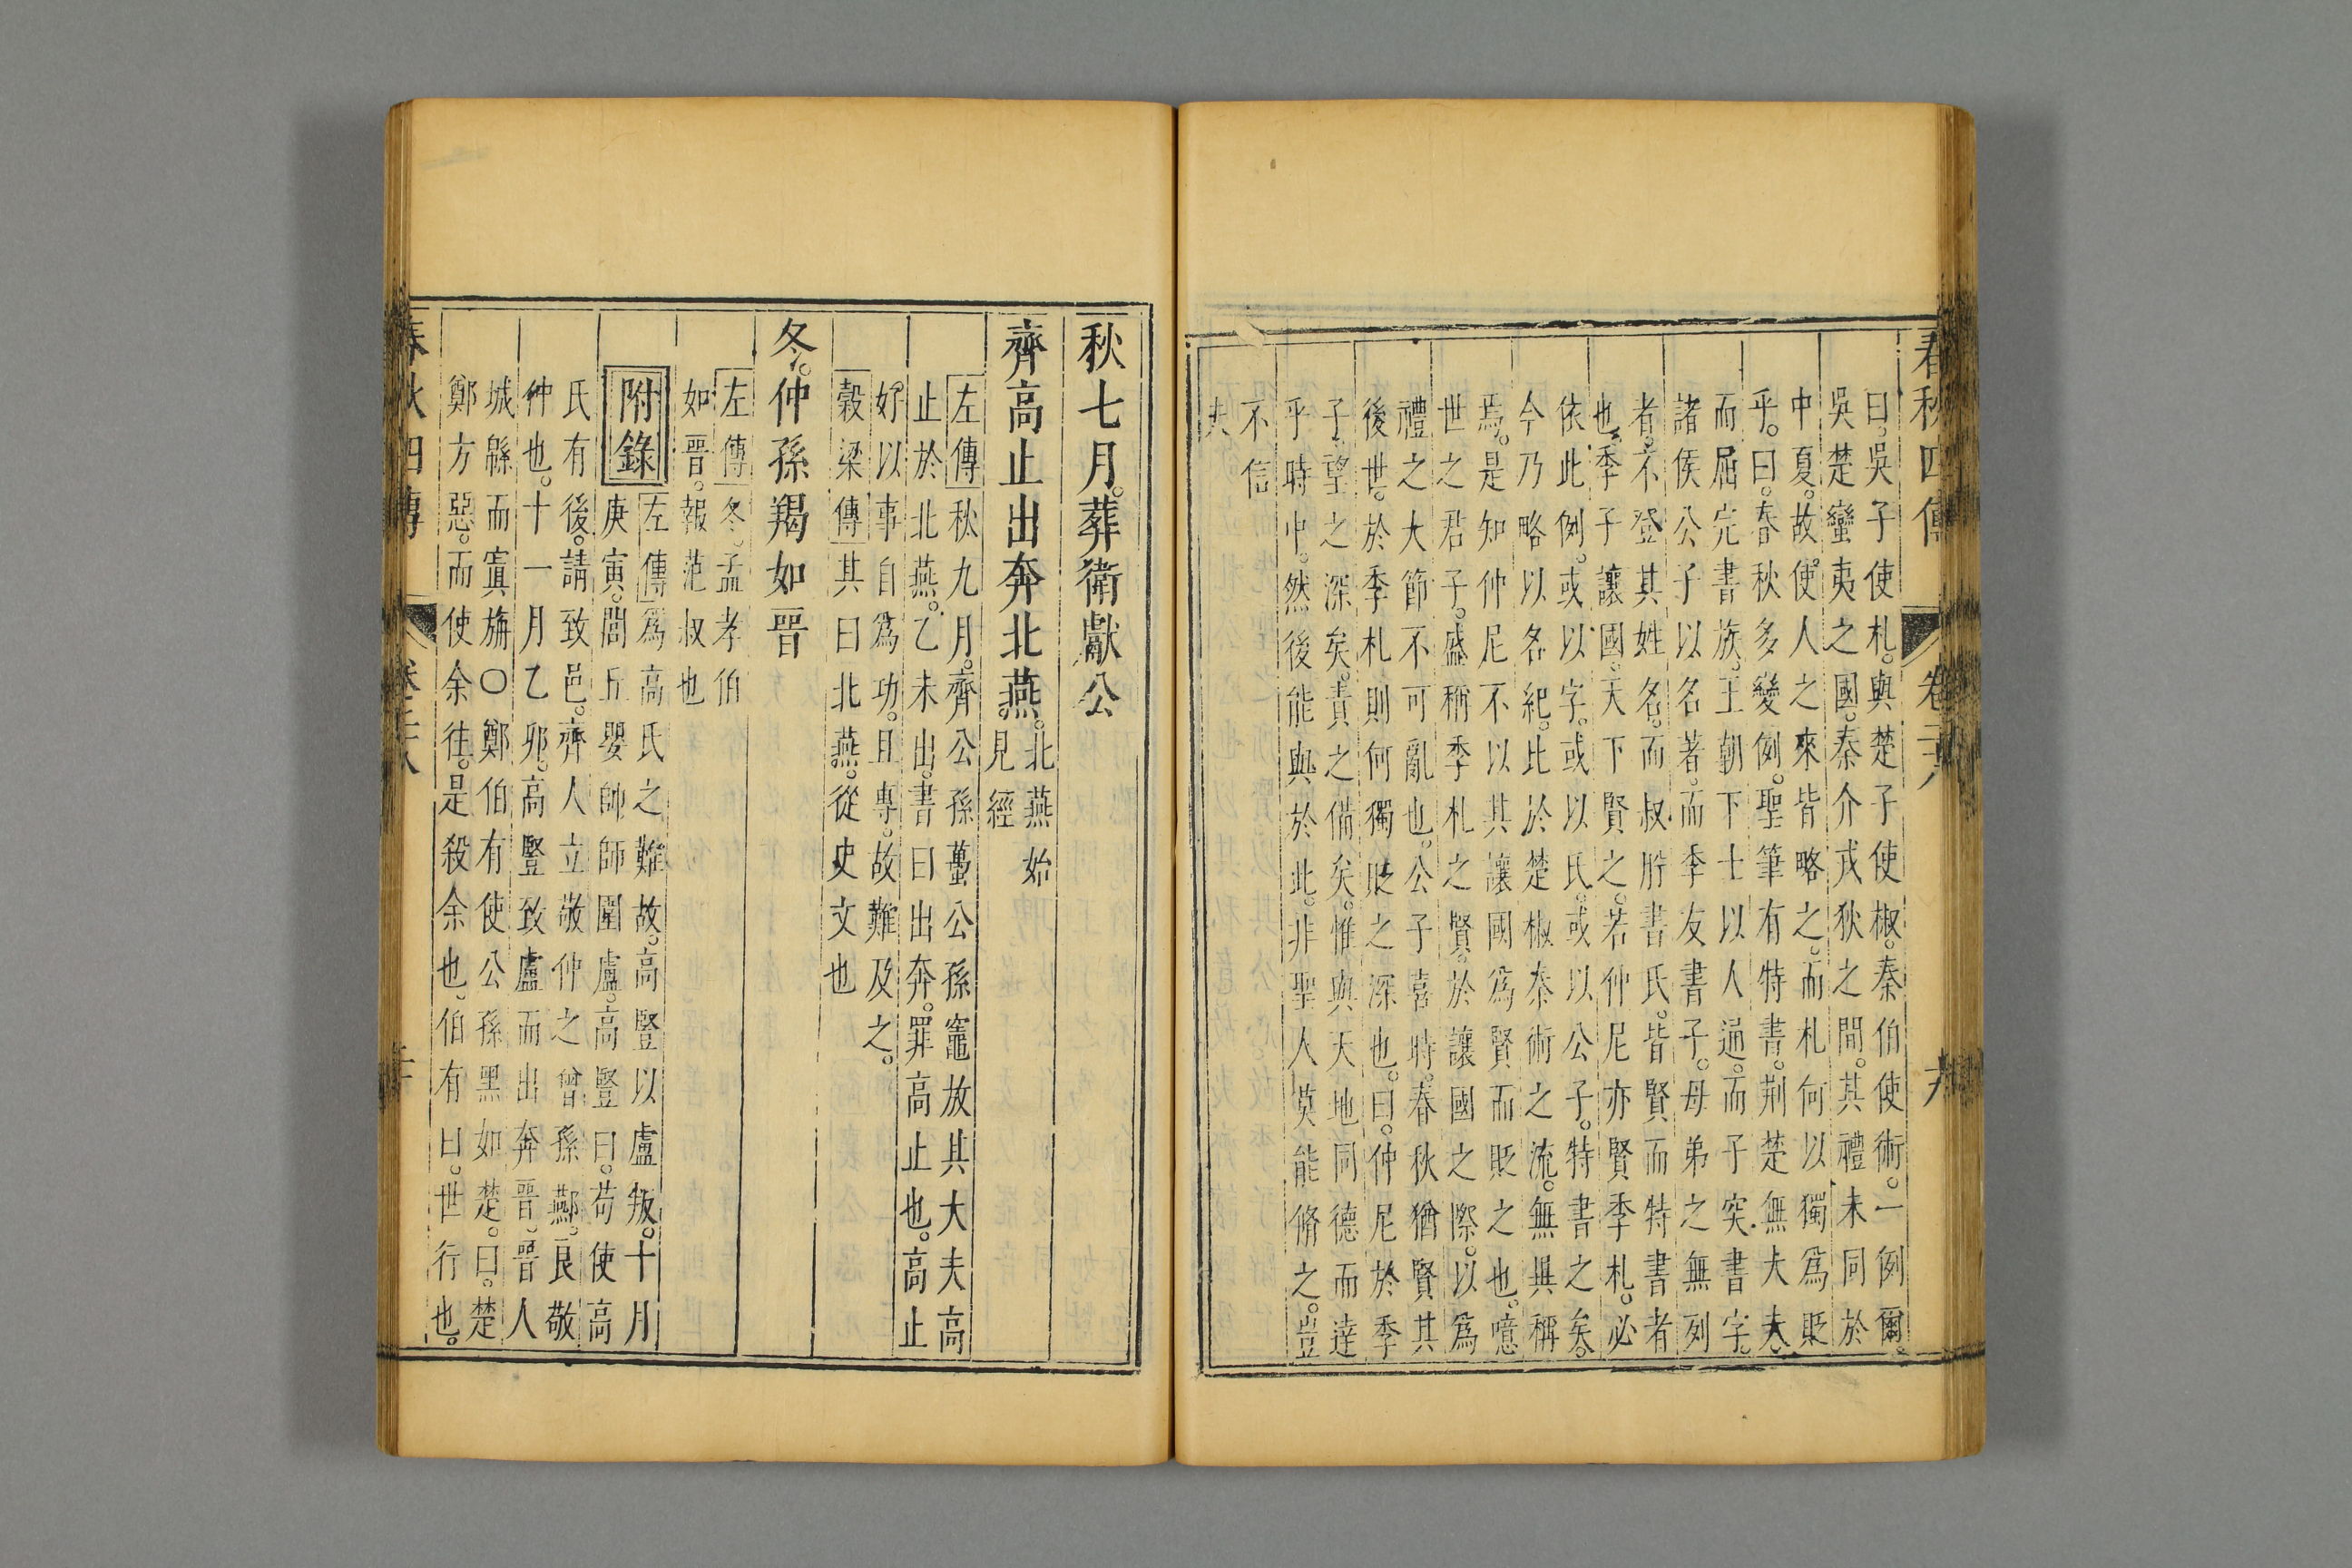 春秋四傳 卷二十八 十九
曰吳子使札與楚子使椒秦伯使術一例爾
吳楚蠻夷之國秦介戎狄之間其禮未同於
中夏故使人之來皆略之而札何以獨爲貶
乎曰春秋多變例聖筆有特書荆楚無大夫
而屈完書族王朝下士以人通而子突書字
諸侯公子以名著而季友書子母弟之無列
者不登其姓名而叔肸書氏皆賢而特書者
也季子讓國天下賢之若仲尼亦賢季札必
依此例或以字或以氏或以公子特書之矣
今乃略以名紀比於楚椒秦術之流無異稱
焉是知仲尼不以其讓國爲賢而貶之也噫
世之君子盛稱季札之賢於讓國之際以爲
禮之大節不可亂也公子喜時春秋猶賢其
後世於季札則何獨貶之深也曰仲尼於季
子望之深矣責之備矣惟與天地同德而達
乎時中然後能與於此非聖人莫能脩之豈
不信
夫
秋七月葬衛獻公
齊高止出奔北燕 北燕始
見經
左傳 秋九月齊公孫蠆公孫竈放其大夫高
止於北燕乙未出書曰出奔罪高止也高止
好以事自爲功且專故難及之
穀梁傳 其曰北燕從史文也
冬仲孫羯如晉
左傳 冬孟孝伯
如晉報范叔也
附錄 左傳 爲高氏之難故高豎以盧叛十月
庚寅閭丘嬰帥師圍盧高豎曰苟使高
氏有後請致邑齊人立敬仲之曾孫酀良敬
仲也十一月乙卯高豎致盧而出奔晉晉人
城緜而寘旃〇鄭伯有使公孫黑如楚曰楚
鄭方惡而使余往是殺余也伯有曰世行也
春秋四傳 卷二十八 二十